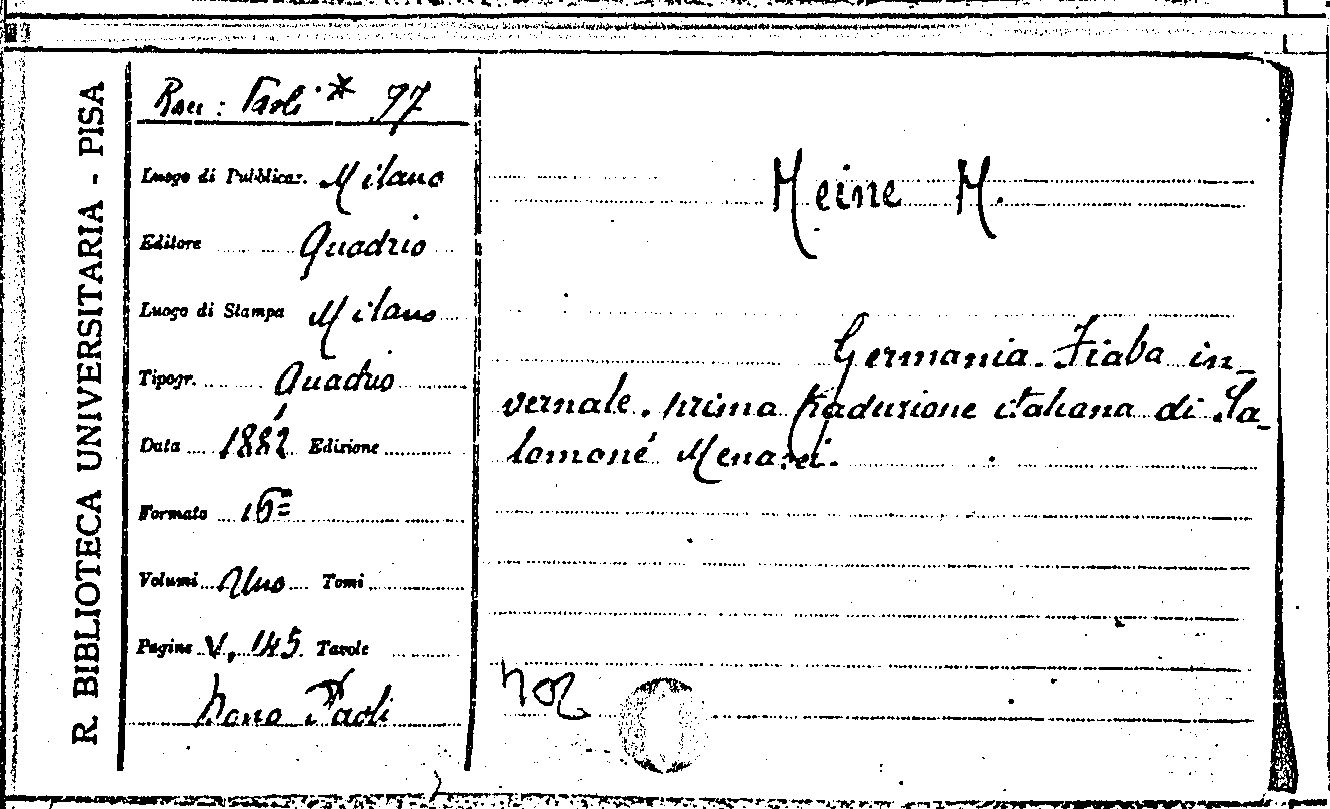 R. BIBLIOTECA UNIVERSITARIA - PISA
Racc: Paoli * 97
Luogo di Pubblicaz. Milano
Editore Quadrio
Luogo di Stampa Milano
Tipogr. Quadrio
Data 1882 Edizione
Formato 16º
Volumi Uno Tomi
Pagine V, 145 Tavole
Dono Paoli
Heine H.
Germania. Fiaba in-
vernale. prima traduzione italiana di Sa-
lomone Menasci.